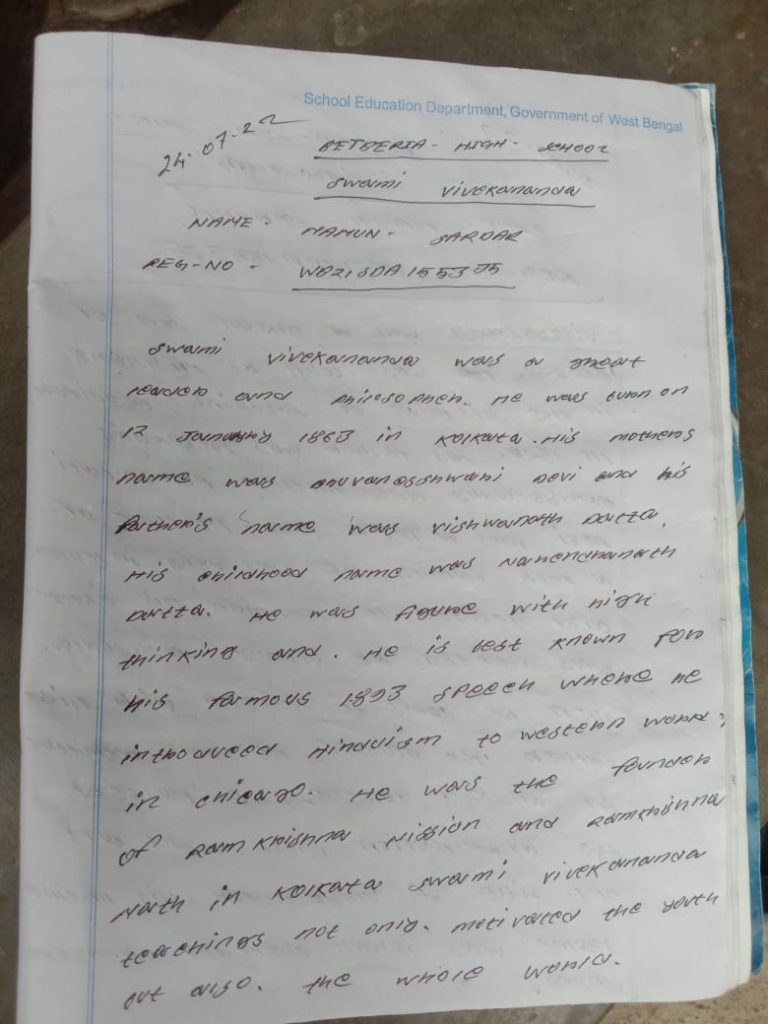 School Education Department, Government of West Bengal
24.07.22
BETBERIA - HIGH - SCHOOL
Swami Vivekananda
NAME - MAMUN - SARDAR
REG-NO - WB21SDA155305
Swami Vivekananda was a great
leader and philosopher. He was burn on
12 January 1863 in Kolkata. His mothers
name was Bhuvaneshwari Devi and his
father's name was Vishwanath Datta.
His childhood name was Narendranath
Datta. He was figure with high
thinking and. He is best known for
his famous 1893 speech where he
introduced Hinduism to western world;
in chicago. He was the founder
of Ramkrishna Mission and Ramkrishna
Math in Kolkata swami vivekananda
teachings not only. motivated the youth
but also. the whole world.